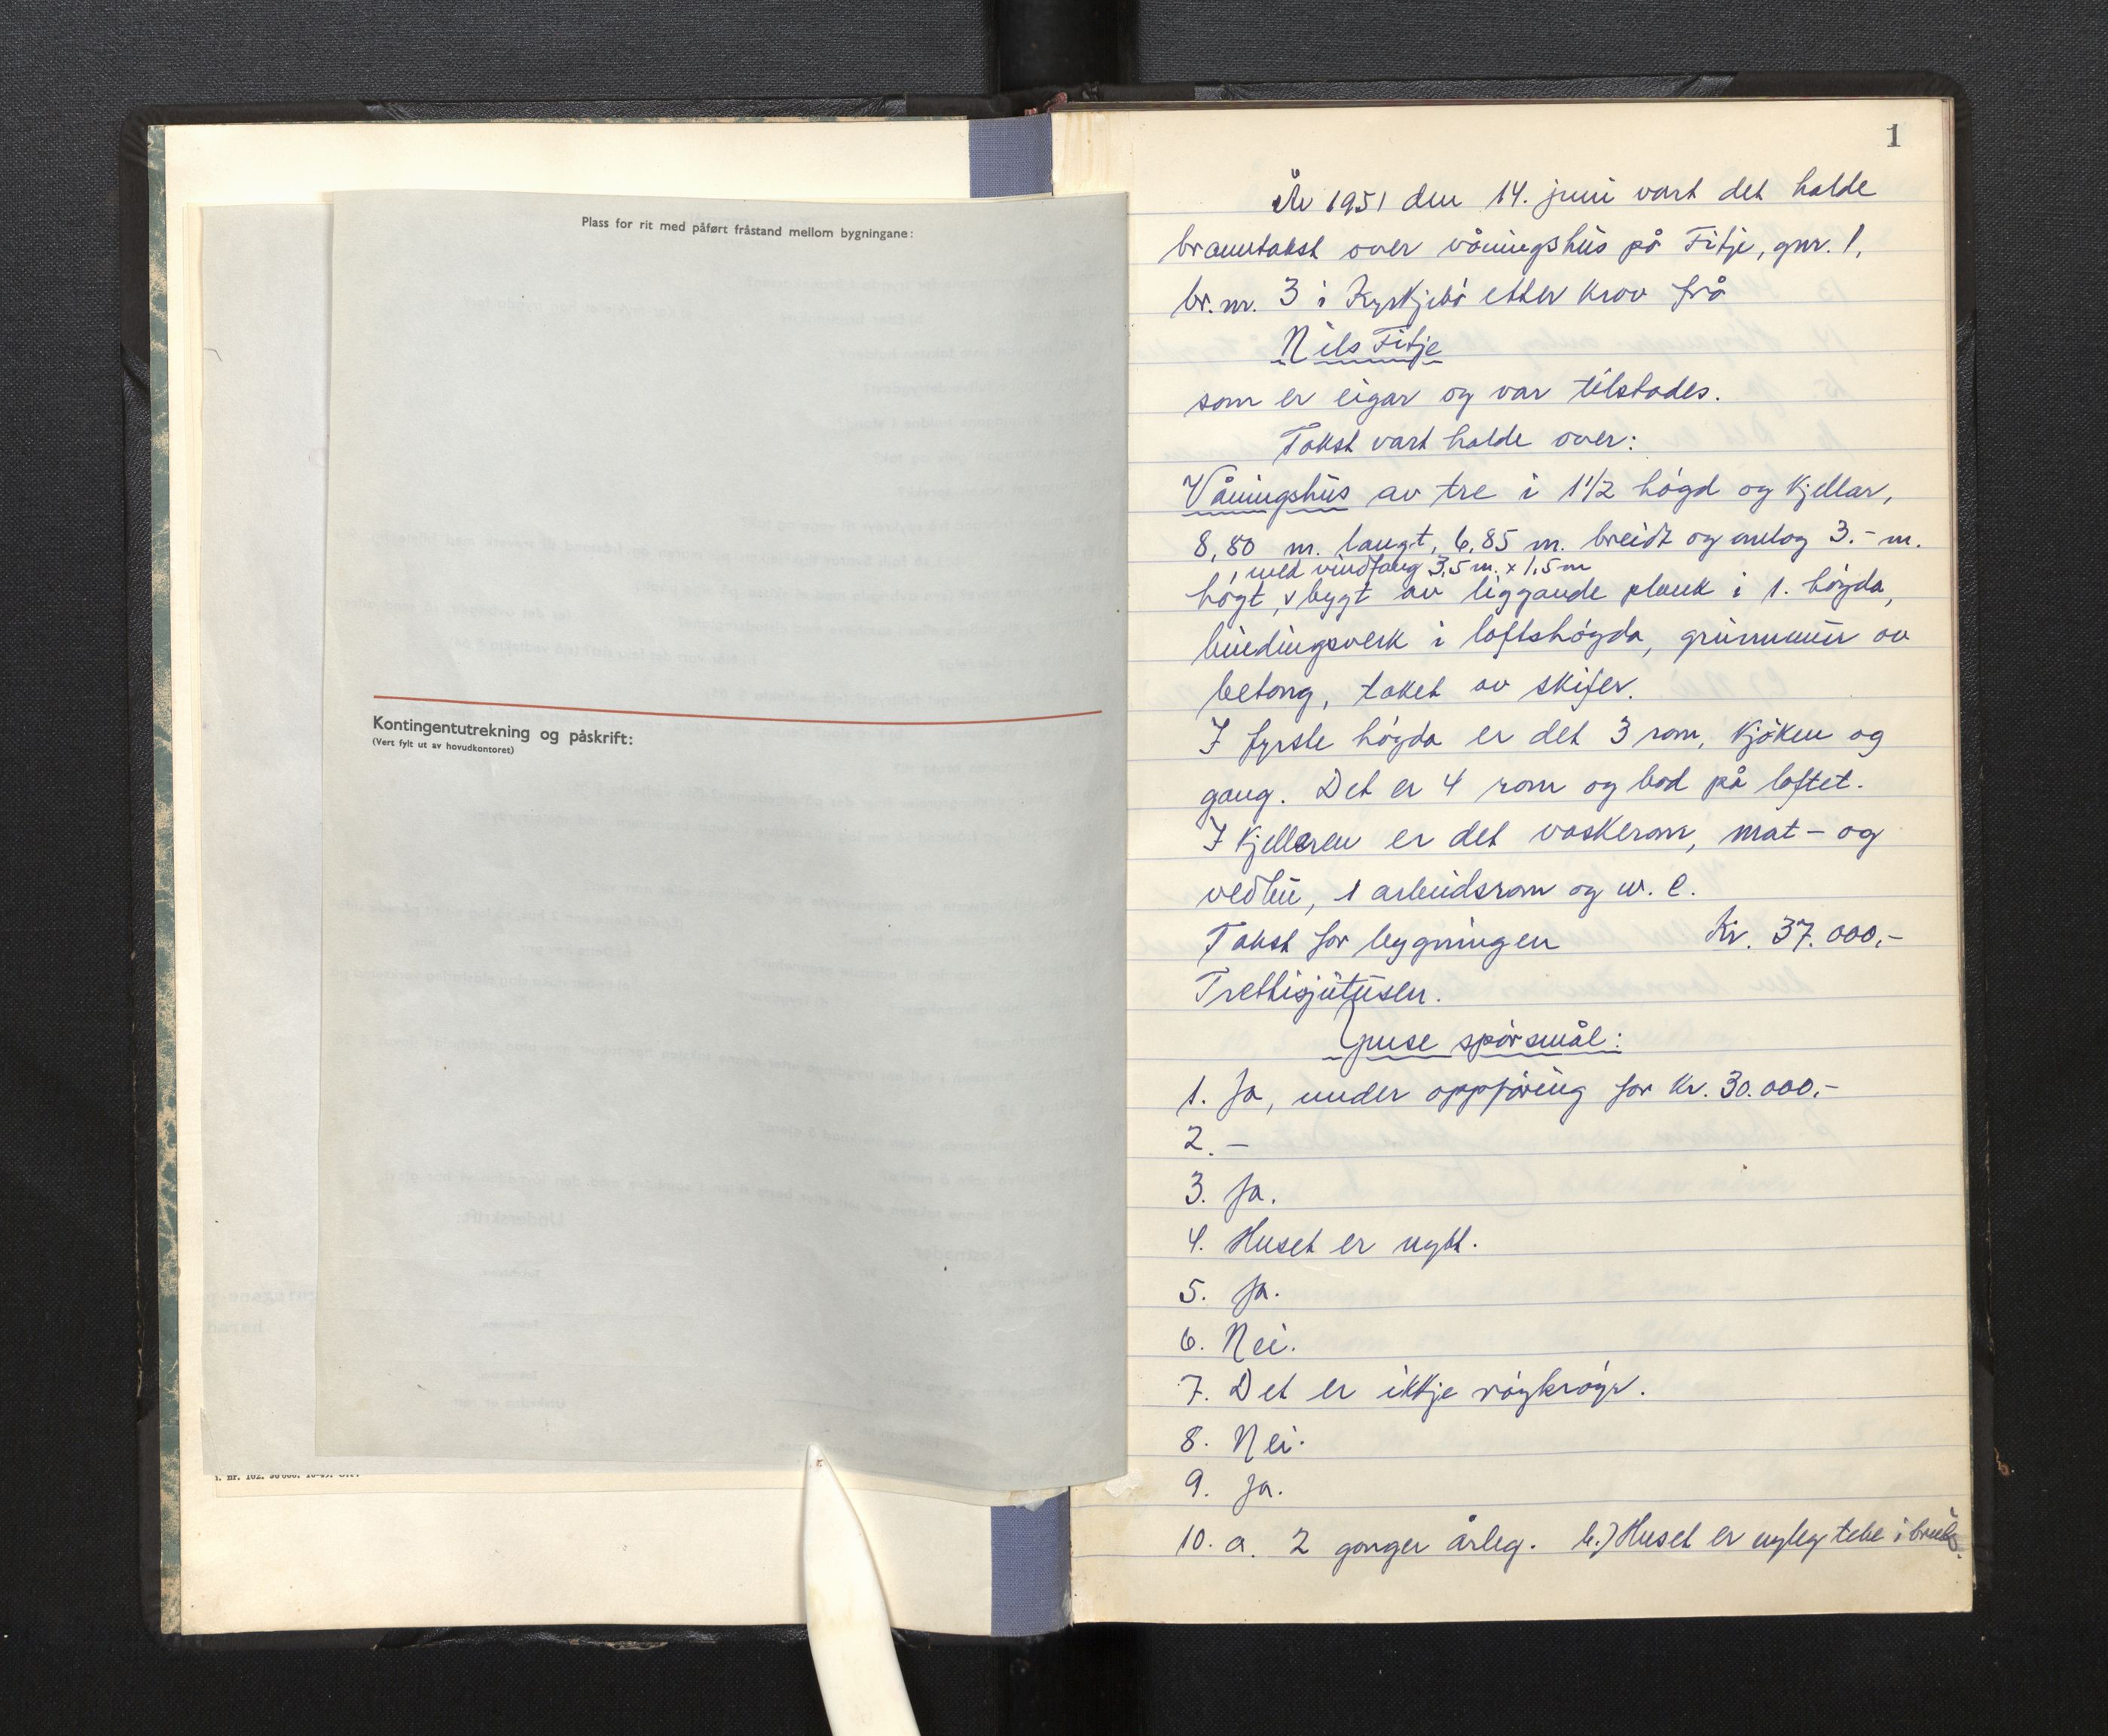 Plass for rit med påført fråstand mellom bygningane:
Kontingentutrekning og påskrift:
(Vert fylt ut av hovudkontoret)
1
År 1951 den 14. juni vart det halde
branntakst over våningshus på Fitje, gnr. 1,
br.nr. 3 i Kyrkjebø etter krav frå
Nils Fitje
som er eigar og var tilstades.
Takst vart halde over:
Våningshus av tre i 1 1/2 høgd og kjellar,
8,80 m. langt, 6,85 m. breidt og omlag 3.- m.
, med vindfang 3,5 m. x 1,5 m
høgt, v bygt av liggande plank i 1. høgda,
bindingsverk i loftshøgda, grunnmur av
betong, taket av skifer.
I fyrste høgda er det 3 rom, kjøken og
gang. Det er 4 rom og bod på loftet.
I kjellaren er det vaskerom, mat- og
vedbu, 1 arbeidsrom og w.c.
Takst for bygningen Kr. 37.000,-
Trettisjutusen.
Ymse spørsmål:
1. Ja, under oppføring for kr. 30.000.-
2. -
3. Ja.
4. Huset er nytt.
5. Ja.
6. Nei.
7. Det er ikkje røykrøyr.
8. Nei.
9. Ja.
10. a. 2 gonger årleg. b.) Huset er nyleg teke i bruk.